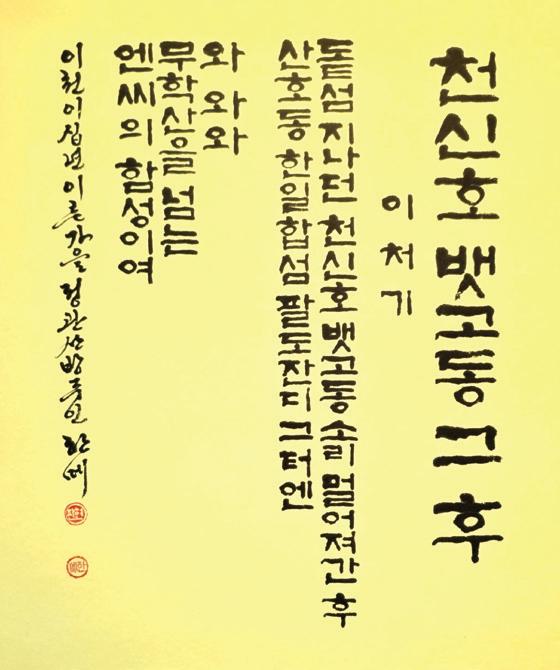 천신호 뱃고동 그 후
이처기
돝섬 지나던 천신호 뱃고동 소리 멀어져 간 후
산호동 한일합섬 팔도잔디 그 터엔
와 와 와
무학산을 넘는
엔씨의 함성이여
이천이십년 이른 가을 정관산방주인 한메